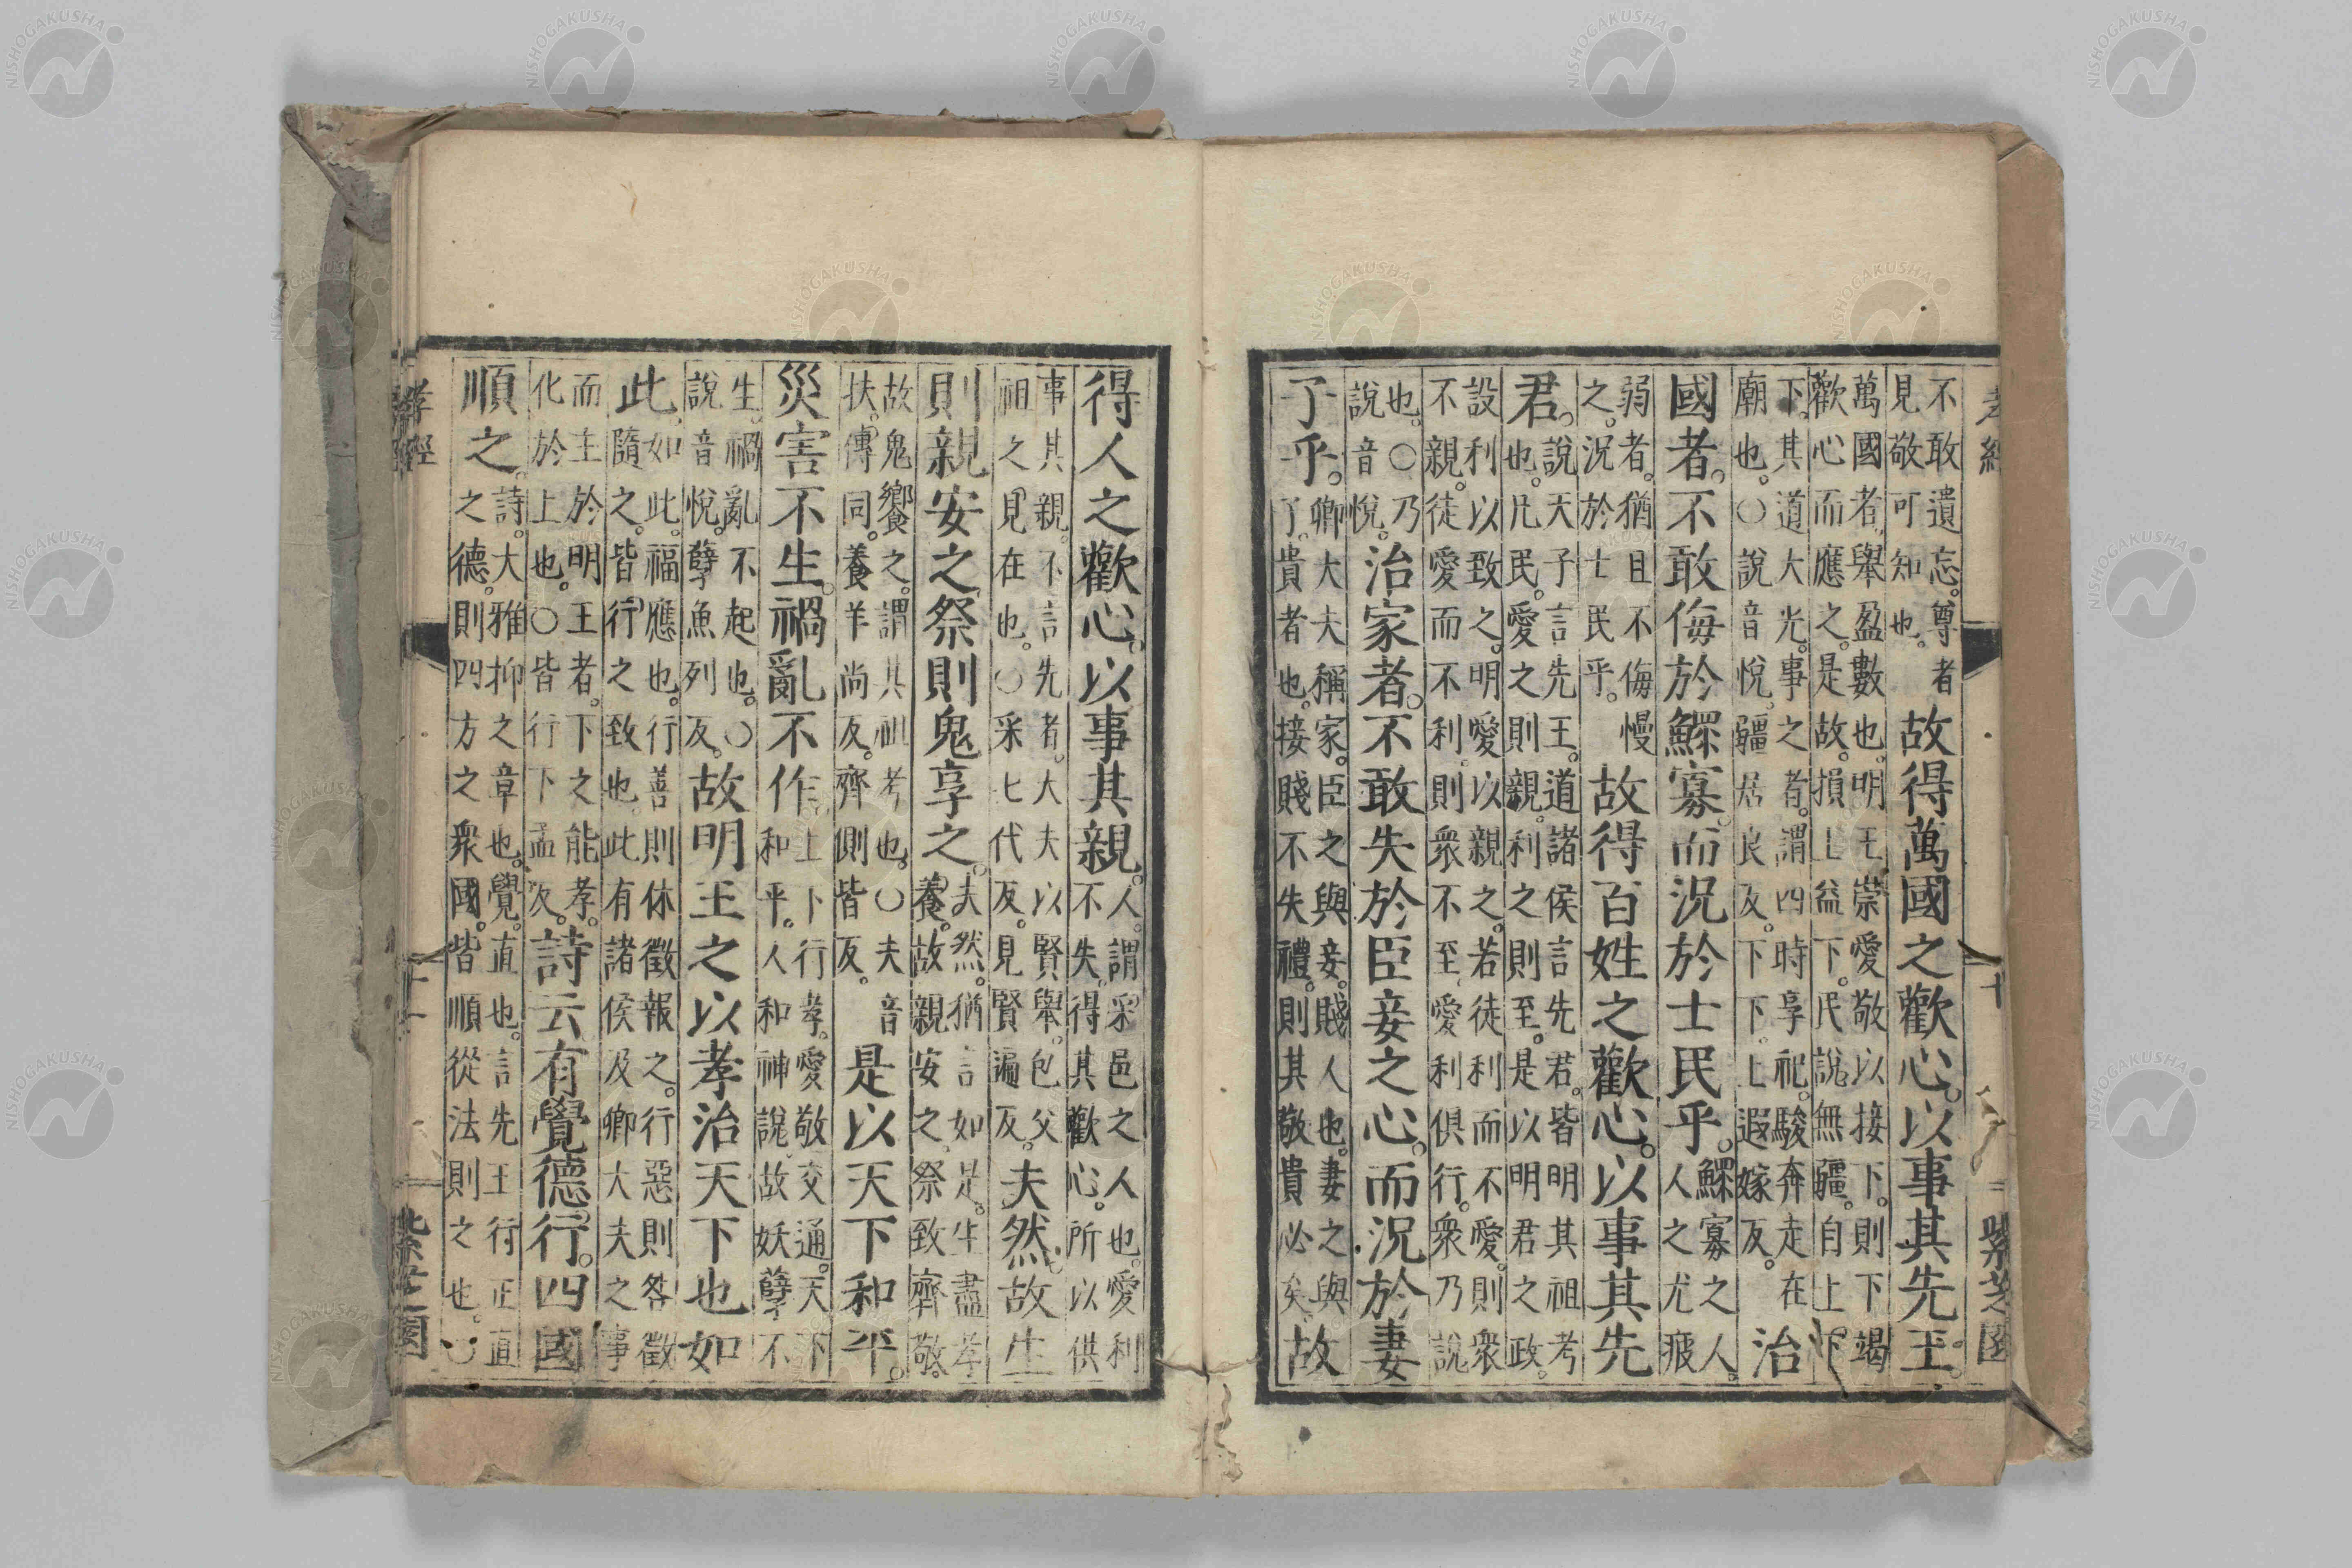 孝經 十 紫芝園
不敢遺忘。尊者
見敬可知也。
故得萬國之歡心。以事其先王。
萬國者。舉盈數也。明王崇愛敬以接下。則下竭
歡心而應之。是故。損上益下。民說無疆。自上下
下。其道大光。事之者。謂四時享祀。駿奔走在
廟也。○說音悅。疆居良反。下下。上遐嫁反。
治
國者。不敢侮於鰥寡。而況於士民乎。
鰥寡之人。
人之尤疲
弱者。猶且不侮慢
之。況於士民乎。
故得百姓之歡心。以事其先
君。
說天子言先王。道諸侯言先君。皆明其祖考
也。凡民。愛之則親。利之則至。是以明君之政。
設利以致之。明愛以親之。若徒利而不愛。則衆
不親。徒愛而不利。則衆不至。愛利俱行。衆乃說
也。○乃
說音悅。
治家者。不敢失於臣妾之心。而況於妻
子乎。
卿大夫稱家。臣之與妾。賤人也。妻之與
子。貴者也。接賤不失禮。則其敬貴必矣。
故
得人之歡心。以事其親。
人。謂采邑之人也。愛利
不失。得其歡心。所以供
事其親。不言先者。大夫以賢舉。包父
祖之見在也。○采七代反。見賢遍反。
夫然。故生
則親安之祭則鬼享之。
夫然。猶言如是。生盡孝
養。故親安之。祭致齊敬。
故鬼饗之。謂其祖考也。○夫音
扶。傳同。養羊尚反。齊側皆反。
是以天下和平。
災害不生。禍亂不作
上下行孝。愛敬交通。天下
和平。人和神說。故妖孽不
生。禍亂不起也。○
說音悅。孽魚列反。
故明王之以孝治天下也如
此。
如此。福應也。行善則休徵報之。行惡則咎徵
隨之。皆行之致也。此有諸侯及卿大夫之事
而主於明王者。下之能孝。
化於上也。○皆行下孟反。
詩云有覺德行。四國
順之。
詩。大雅抑之章也。覺。直也。言先王行正直
之德。則四方之衆國。皆順從法則之也。○
孝經 十一 紫芝園
NISHOGAKUSHA